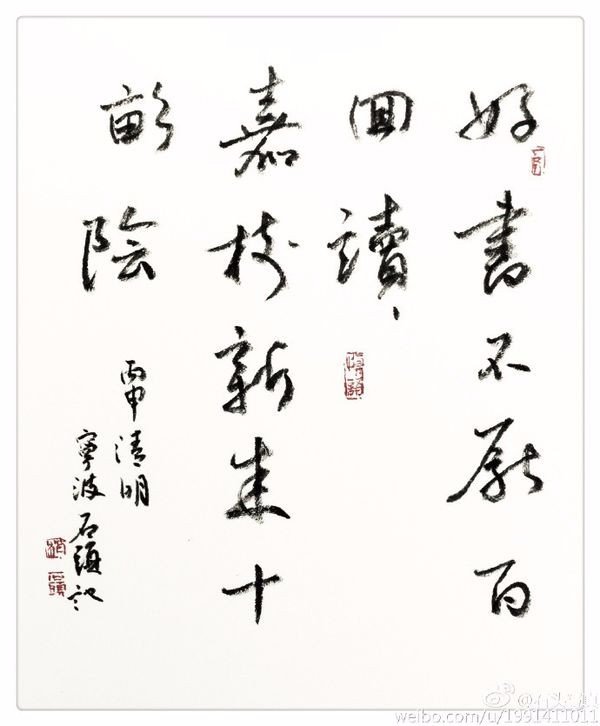 好書不厭百
回讀、
嘉樹新成十
畝陰
丙申清明
寧波石頭記
weibo.com/u/1991411011